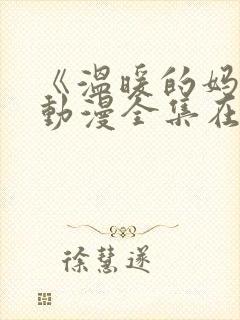 《温暖的妈
动漫全集在
徐慧遂